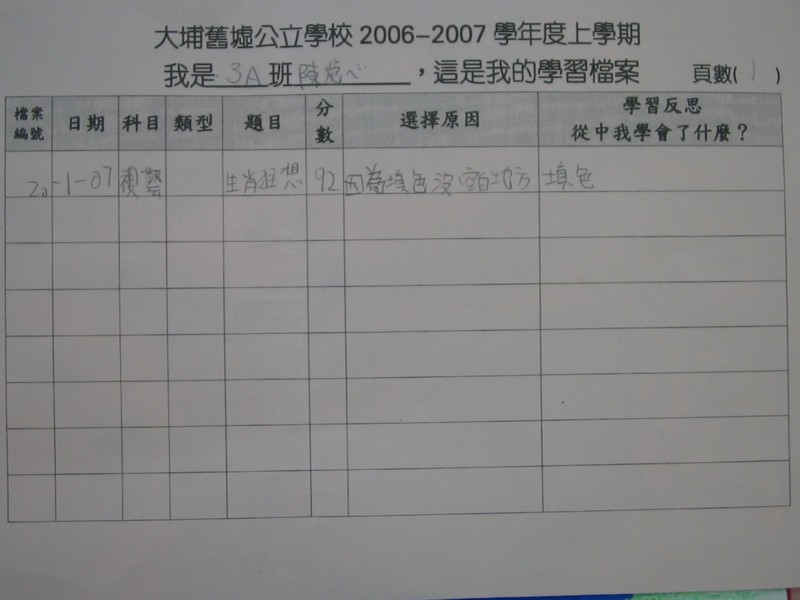 大埔舊墟公立學校 2006–2007 學年度上學期
我是 3A 班 陳 ，這是我的學習檔案 頁數( 1 )
檔案編號 日期 科目 類型 題目 分數 選擇原因 學習反思 從中我學會了什麼？
20-1-07 視藝 生肖狂想 92 因為填色沒空白地方 填色